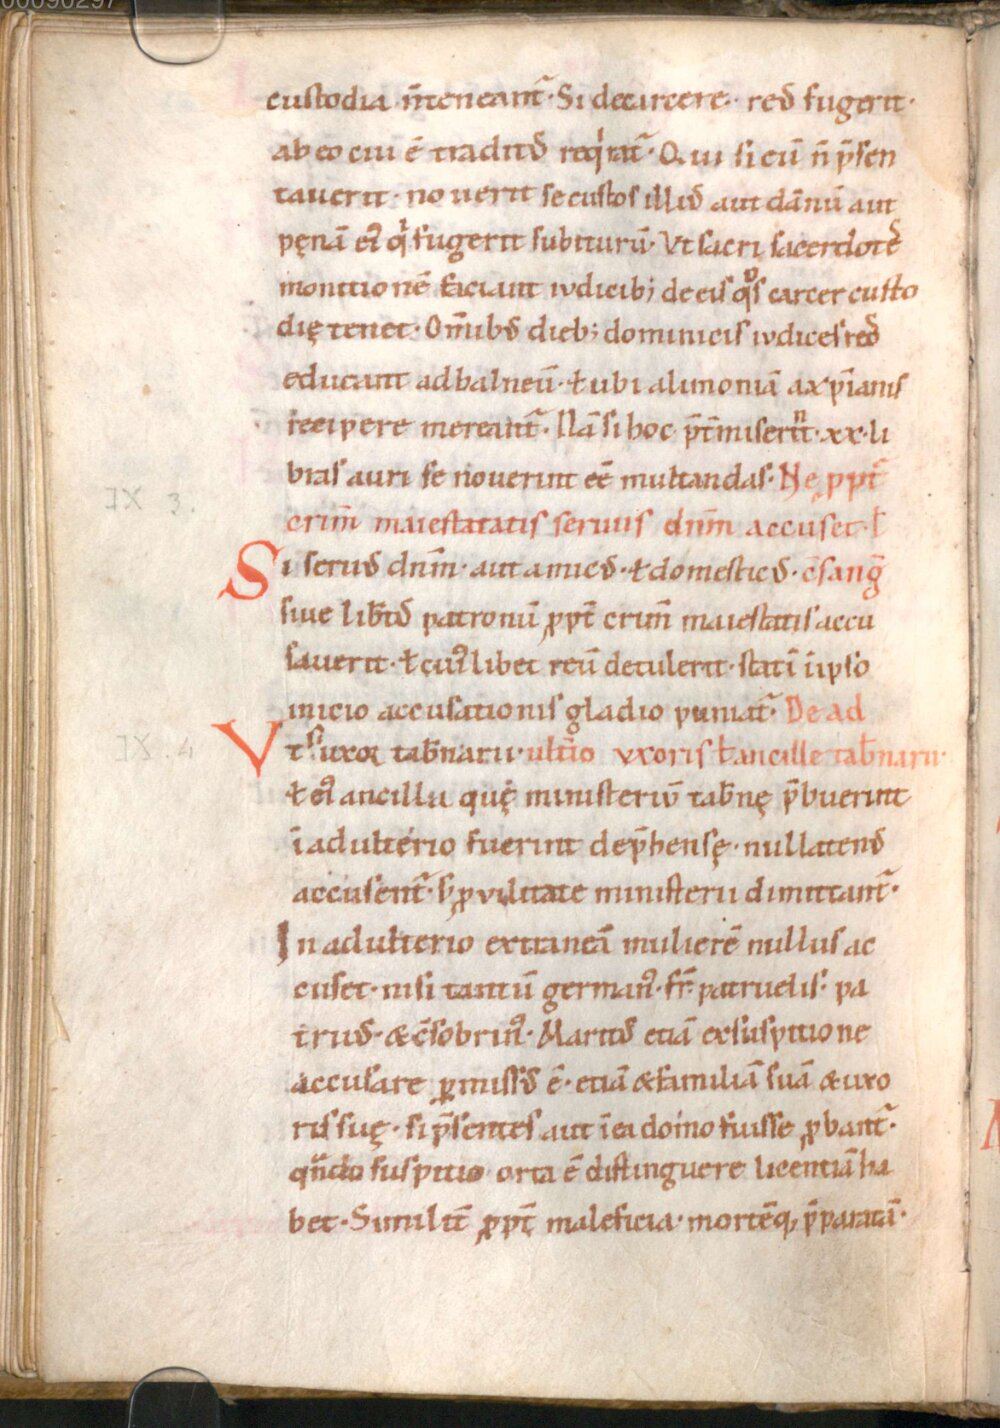 00090297
custodia ñteneant᷑· Si decarcere· reꝰ fugerit·
ab eo cui ē traditꝰ reqͥrat᷑· Qui si eū n̄ p̄sen
tauerit· nouerit se custos illiꝰ aut dānū aut
pęnā eiꝰ qͥ fugerit subiturū· Vt sacri sacerdotes
monitionē faciant iudicib; de eis qͦs carcer custo
dię tenet· Om̄ibꝰ dieb; dominicis iudices reos
educant ad balneū· ł ubi alimoniā a xp̄ianis
recipere mereant᷑· Nā si hoc p̄t̄miserīt· xx· li
bras auri se nouerint eē multandas· Ne ꝓpt̄
crim̄ maiestatatis seruus dnm̄ accuset· ł
Si seruꝰ dnm̄· aut amicꝰ· ł domesticꝰ· c̄sanḡ
siue lib̄tꝰ patronū ꝓpt̄ crim̄ maiestatis accu
sauerit· ł cuiꝰlibet reū detulerit· statī ī ipso
inicio accusationis gladio puniat᷑· De ad
Vt si uxor tab̄narii· ultīo uxoris ł ancille tab̄narii·
ł eiꝰ ancilla quę ministeriū tab̄nę p̄buerint
ī adulterio fuerint dep̄hensę· nullatenꝰ
accusent᷑· s; ꝓ uilitate ministerii dimittant᷑·
In adulterio extraneā mulierē nullus ac
cuset· nisi tantū germanꝰ· fr̄ patruelis· pa
truꝰ· & c̄sobrinꝰ· Maritꝰ etiā ex suspitione
accusare ꝑmissꝰ ē· etiā & familiā suā & uxo
ris suę· si p̄sentes aut ī ea domo fuisse ꝓbant᷑·
qn̄do suspitio orta ē distinguere licentiā ha
bet· Similit̄ ꝓpt̄ maleficia· mortēq; p̄paratā·
IX 3.
IX. 4